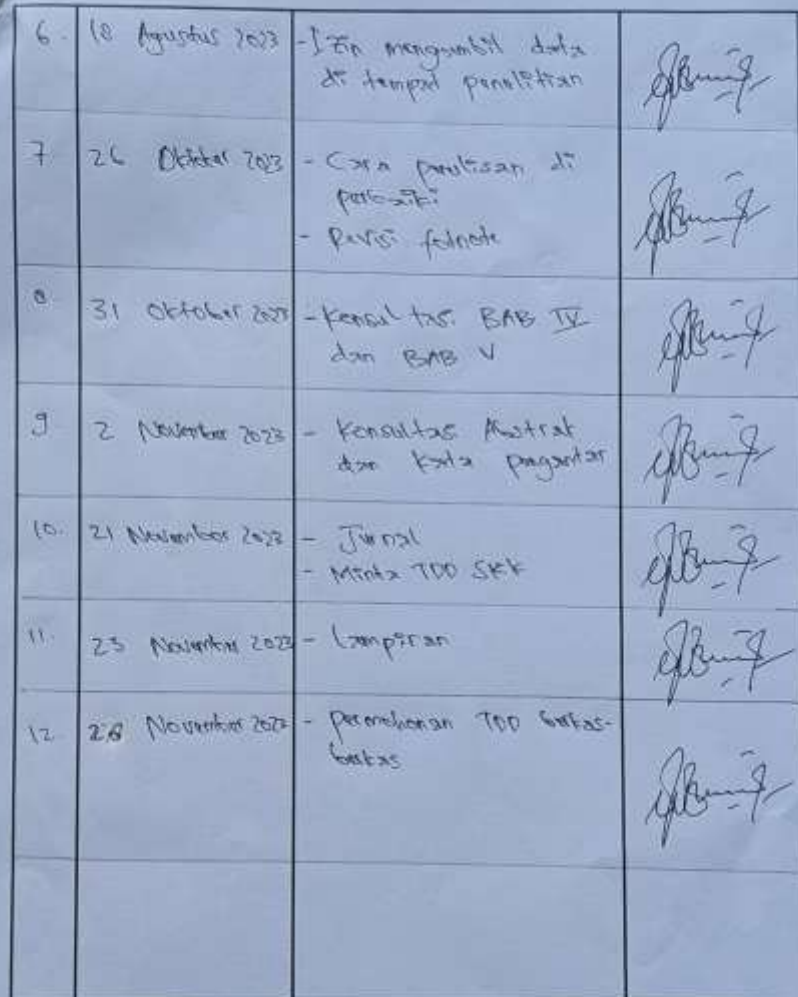 6. 18 Agustus 2023 - Izin mengambil data
di tempat penelitian
7 26 Oktober 2023 - Cara penulisan di
perbaiki
- Revisi footnote
8 31 Oktober 2023 - Konsultasi BAB IV
dan BAB V
9 2 November 2023 - Konsultasi Abstrak
dan kata pengantar
10. 21 November 2023 - Jurnal
- Minta TDD SKK
11. 23 November 2023 - Lampiran
12 28 November 2023 - Permohonan TDD berkas-
berkas